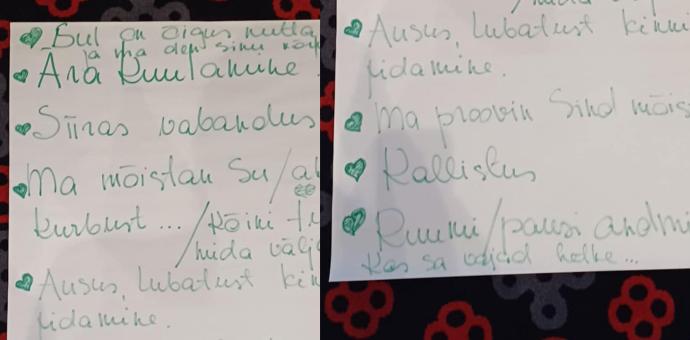 Sul on õigus nutta
ja ma olen sinu
Ära kuulamine
Siiras vabandus
Ma mõistan Su/
kurbust .../kõiki
mida välj
Ausus, Lubadust kin
pidamine.
Ausus, Lubadust kinni
pidamine.
Ma proovin Sind mõis
Kallistus
Ruumi/pausi andmi
Kas sa vajad hetke...